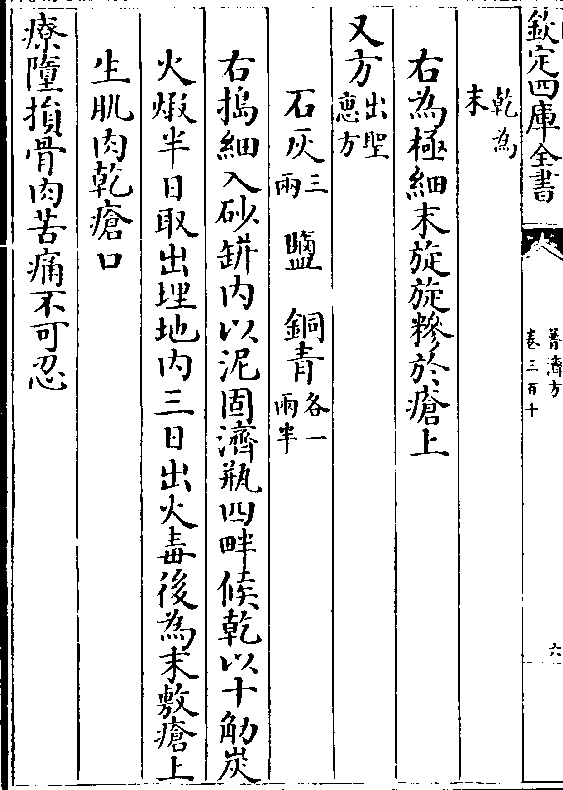 欽定四庫全書
普濟方
卷三百十
六
乾為
末
右為極細末旋旋糝於瘡上
又方出聖
惠方
石灰三
兩 鹽 銅青各一
兩半
右搗細入砂缾内以泥固濟瓶四畔候乾以十觔炭
火煅半日取出埋地内三日出火毒後為末敷瘡上
生肌肉乾瘡口
療墮損骨肉苦痛不可忍